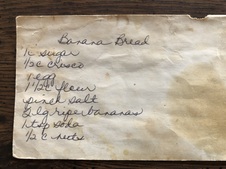 Banana Bread
1c sugar
1/2c crisco
1 egg
1 1/2c flour
pinch salt
3 lg ripe bananas
1 tsp soda
1/2 c nuts